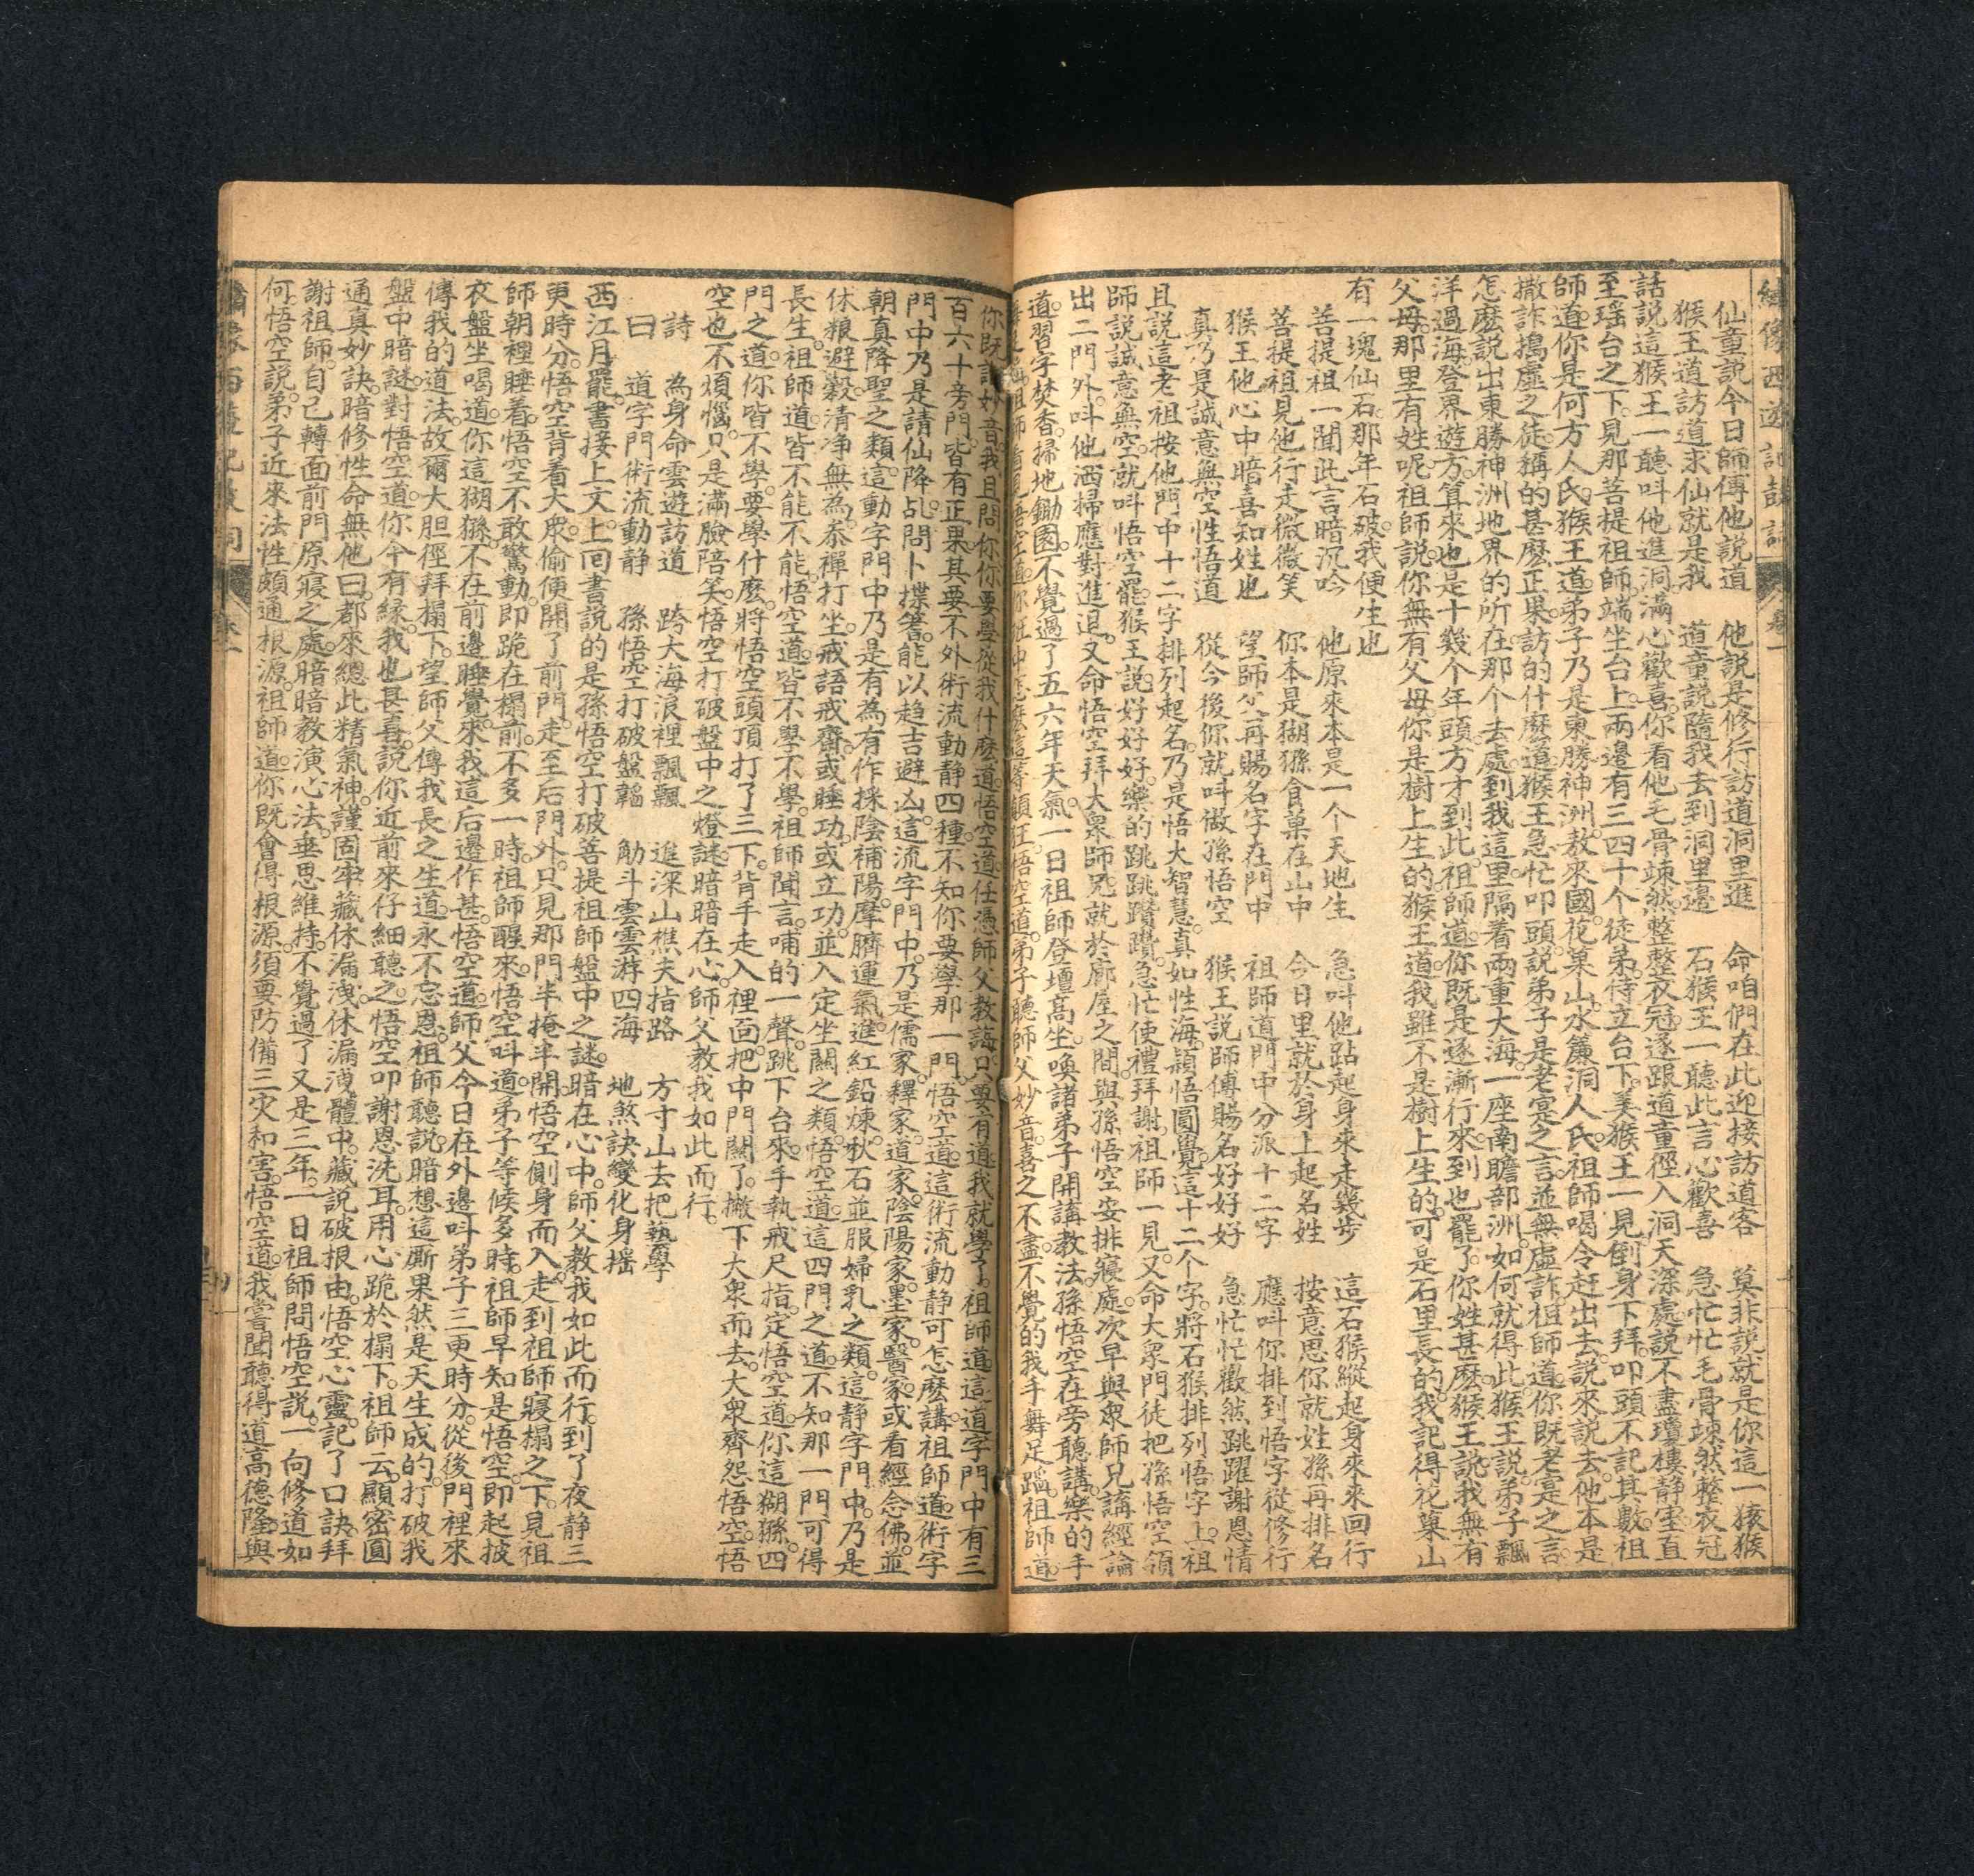 繡像西遊記鼓詞 卷一
仙童説今日師傳他説道 他説是修行訪道洞里進 命咱們在此迎接訪道客 莫非説就是你這一猿猴
猴王道訪道求仙就是我 道童説隨我去到洞里邊 石猴王一聽此言心歡喜 急忙忙毛骨竦然整衣冠
話説這猴王一聽呌他進洞滿心歡喜你看他毛骨竦然整整衣冠遂跟道童徑入洞天深處説不盡瓊樓静室直
至瑶台之下見那菩提祖師端坐台上兩邊有三四十个徒弟侍立台下美猴王一見倒身下拜叩頭不記其數祖
師道你是何方人氏猴王道弟子乃是東勝神洲敖來國花果山水簾洞人氏祖師喝令赶出去説來説去他本是
撒詐搗虛之徒稱的甚麽正果訪的什麽道猴王急忙叩頭説弟子是老寔之言並無虛詐祖師道你既老寔之言
怎麽説出東勝神洲地界的所在那个去處到我這里隔着兩重大海一座南瞻部洲如何就得此猴王説弟子飄
洋過海登界遊方算來也是十幾个年頭方才到此祖師道你既是逐漸行來到也罷了你姓甚麽猴王説我無有
父母那里有姓呢祖師説你無有父母你是樹上生的猴王道我雖不是樹上生的可是石里長的我記得花菓山
有一塊仙石那年石破我便生也
菩提祖一聞此言暗沉吟 他原來本是一个天地生 急呌他跕起身來走幾步 這石猴縱起身來來回行
菩提祖見他行走微微笑 你本是猢猻食菓在山中 今日里就於身上起名姓 按意思你就姓孫再排名
猴王他心中暗喜知姓也 望師父再賜名字在門中 祖師道門中分派十二字 應呌你排到悟字從修行
真乃是誠意無空性悟道 從今後你就呌做孫悟空 猴王説師傅賜名好好好 急忙忙歡然跳躍謝恩情
且説這老祖按他門中十二字排列起名乃是悟大智慧真如性海頴悟圓覺這十二个字將石猴排列悟字上祖
師説誠意無空就呌悟空罷猴王説好好好樂的跳跳躦躦急忙使禮拜謝祖師一見又命大衆門徒把孫悟空領
出二門外呌他洒掃應對進退又命悟空拜大衆師兄就於廊屋之間與孫悟空安排寢處次早與衆師兄講經論
道習字焚香掃地鋤園不覺過了五六年天氣一日祖師登壇高坐喚諸弟子開講教法孫悟空在旁聽講樂的手
弟子聽師父妙音喜之不盡不覺的我手舞足蹈祖師道
你既識妙音我且問你你要學從我什麽道悟空道任憑師父教誨只要有道我就學了祖師道這道字門中有三
百六十旁門皆有正果其要不外術流動静四種不知你要學那一門悟空道這術流動静可怎麽講祖師道術字
門中乃是請仙降乩問卜揲蓍能以趋吉避凶這流字門中乃是儒家釋家道家陰陽家墨家醫家或看經念佛並
朝真降聖之類這動字門中乃是有為有作採陰補陽摩臍運氣進紅鉛煉秋石並服婦乳之類這静字門中乃是
休粮避穀清净無為叅禪打坐戒語戒齋或睡功或立功並入定坐關之類悟空道這四門之道不知那一門可得
長生祖師道皆不能不能悟空道皆不學不學祖師聞言哺的一聲跳下台來手執戒尺指定悟空道你這猢猻四
門之道你皆不學要學什麽將悟空頭頂打了三下背手走入裡面把中門關了撇下大衆而去大衆齊怨悟空悟
空也不煩惱只是滿臉陪笑悟空打破盤中之燈謎暗暗在心師父教我如此而行
詩 為身命雲遊訪道 跨大海浪裡飄飄 進深山樵夫指路 方寸山去把藝學
曰 道字門術流動静 孫悟空打破盤韜 觔斗雲雲游四海 地煞訣變化身摇
西江月罷書接上文上囘書説的是孫悟空打破菩提祖師盤中之謎暗在心中師父教我如此而行到了夜静三
更時分悟空背看大衆偷便開了前門走至后門外只見那門半掩半開悟空側身而入走到祖師寢榻之下見祖
師朝裡睡着悟空不敢驚動即跪在榻前不多一時祖師醒來悟空呌道弟子等候多時祖師早知是悟空即起披
衣盤坐喝道你這猢猻不在前邊睡覺來我這后邊作甚悟空道師父今日在外邊呌弟子三更時分從後門裡來
傳我的道法故爾大胆徑拜榻下望師父傳我長之生道永不忘恩祖師聽説暗想這厮果然是天生成的打破我
盤中暗謎對悟空道你今有緣我也甚喜説你近前來仔細聽之悟空叩謝恩洗耳用心跪於榻下祖師云顯密圓
通真妙訣暗修性命無他曰都來總此精氣神謹固牢藏休漏洩休漏洩體中藏説破根由悟空心靈記了口訣拜
謝祖師自己轉面前門原寢之處暗暗教演心法垂思維持不覺過了又是三年一日祖師問悟空説一向修道如
何悟空説弟子近來法性頗通根源祖師道你既會得根源須要防備三灾和害悟空道我嘗聞聽得道高德隆與